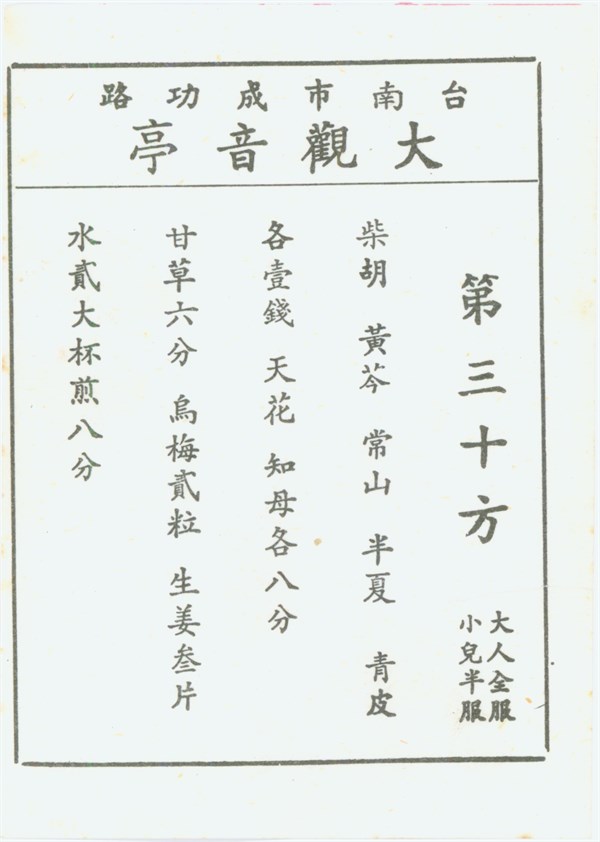 台南市成功路
大觀音亭
第三十方
大人全服
小兒半服
柴胡 黃芩 常山 半夏 青皮
各壹錢 天花 知母各八分
甘草六分 烏梅貳粒 生姜叁片
水貳大杯煎八分